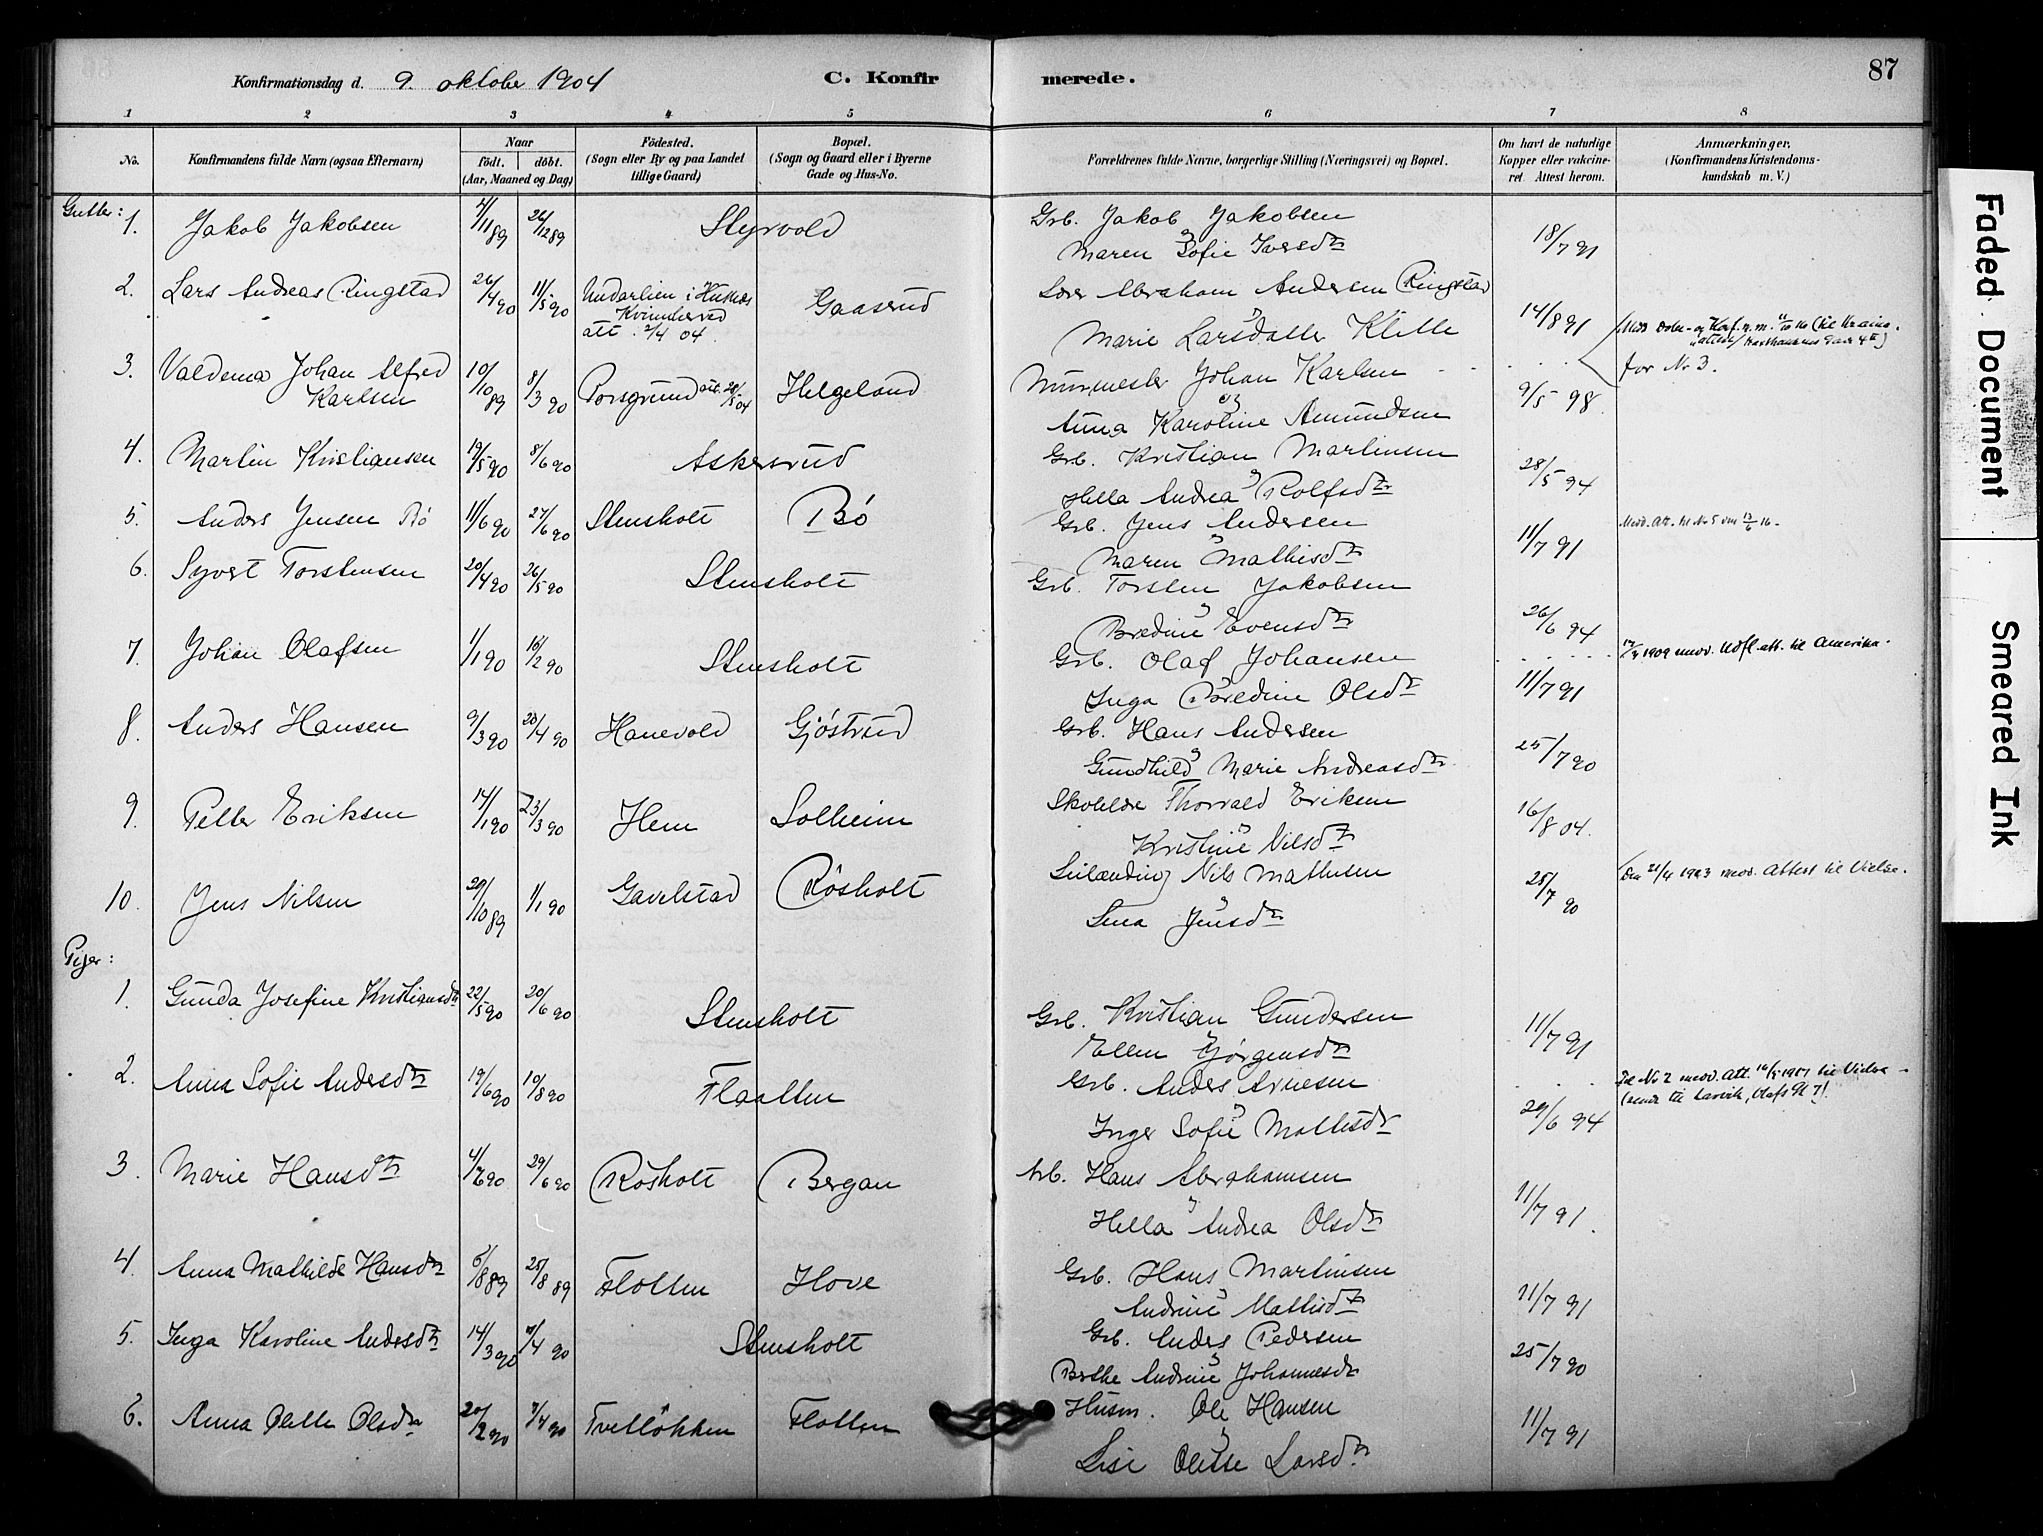 Konfirmationsdag d. 9. oktober 1904
C. Konfirmerede.
87
1 2 3 4 5 6 7 8
No.
Konfirmandens fulde Navn (ogsaa Efternavn)
Naar
födt. döbt.
(Aar, Maaned og Dag)
Födested.
(Sogn eller By og paa Landet
tillige Gaard)
Bopæl.
(Sogn og Gaard eller i Byerne
Gade og Hus-No.
Forældrenes fulde Navne, borgerlige Stilling (Næringsvei) og Bopæl.
Om havt de naturlige
Kopper eller vaccine-
ret. Attest herom.
Anmærkninger.
(Konfirmandens Kristendoms-
kundskab m. V.)
Gutter:
1. Jakob Jakobsen 4/11 89 26/12 89 Styrvold Grb. Jakob Jakobsen
Maren Sofie Iversdtr 18/7 91
2. Lars Andreas Ringstad 26/4 90 11/5 90 Undarlien i Husnes
Kvinnherred
att. 2/4 04. Gaaserud Lærer Abraham Andersen Ringstad
Marie Larsdatter Klette 14/8 91
3. Valdemar Johan Alfred
Karlsen 10/10 89 8/3 90 Porsgrund att. 28/5 04 Helgeland Murmester Johan Karlsen
Anna Karoline Amundsen 9/5 98
for Nr 3.
4. Martin Kristiansen 19/5 90 8/6 90 Askersrud Grb. Kristian Martinsen
Hella Andrea Rolfsdtr 28/5 94
5. Anders Jensen Bö 11/6 90 27/6 90 Stensholt Bö Grb. Jens Andersen
Maren Mathisdtr 11/7 91
Medd. Att. til No 5 den 13/6 16.
6. Syvert Torstensen 20/4 90 26/5 90 Stensholt Grb. Torsten Jakobsen
Bredine Evensdtr 26/6 94
7. Johan Olafsen 1/1 90 16/2 90 Stensholt Grb. Olaf Johansen
Inga Bredine Olsdtr 11/7 91
17/4 1909 medd. Udfl. att. til Amerika.
8. Anders Hansen 9/3 90 20/4 90 Hanevold Gjöstrud Grb. Hans Andersen
Gundhild Marie Andreasdtr 25/7 90
9. Petter Eriksen 14/1 90 23/3 90 Hem Solheim Skolelær Thorvald Eriksen
Kristine Nilsdtr 16/8 04.
10. Jens Nilsen 29/10 89 1/1 90 Gavelstad Rösholt Leilænding Nils Mathisen
Lena Jensdtr 25/7 90
Den 21/4 1923 medd. Attest til Vielse.
Piger:
1. Gunda Josefine Kristiansdtr 22/5 90 20/6 90 Stensholt Grb. Kristian Gundersen
Ellen Jörgensdtr 11/7 91
2. Anna Sofie Andersdtr 19/6 90 10/8 90 Flaatten Grb. Anders Arnesen
Inger Sofie Mathisdtr 29/6 94
Pd No 2 medd. Att. 16/4 1917 til Vielse
(sendt til Larvik, Olafs Gt 7).
3. Marie Hansdtr 4/6 90 29/6 90 Rösholt Bergan Arb. Hans Abrahamsen
Hella Andrea Olsdtr 11/7 91.
4. Anna Mathilde Hansdtr 5/8 89 25/8 89 Flotten Hove Grb. Hans Martinsen
Andrine Mathisdtr 11/7 91
5. Inga Karoline Andersdtr 14/3 90 7/4 90 Stensholt Grb. Anders Pedersen
Berthe Andrine Johannesdtr 25/7 90
6. Anna Olette Olsdtr 20/2 90 7/4 90 Tvetlökken Flotten Husm. Ole Hansen
Lise Olette Larsdtr 11/7 91
Faded Document
Smeared Ink